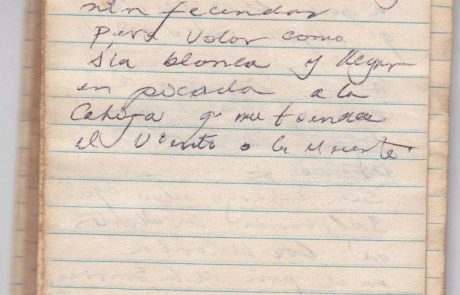 sin fecundar
para volar como
ala blanca y llegar
en picada a la
q me tienda
el viento o la muerte